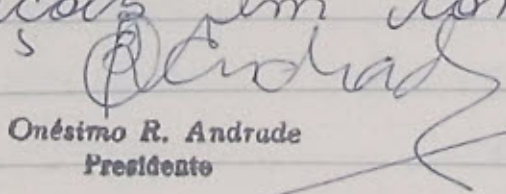 em
s
Andrade
Onésimo R. Andrade
Presidente